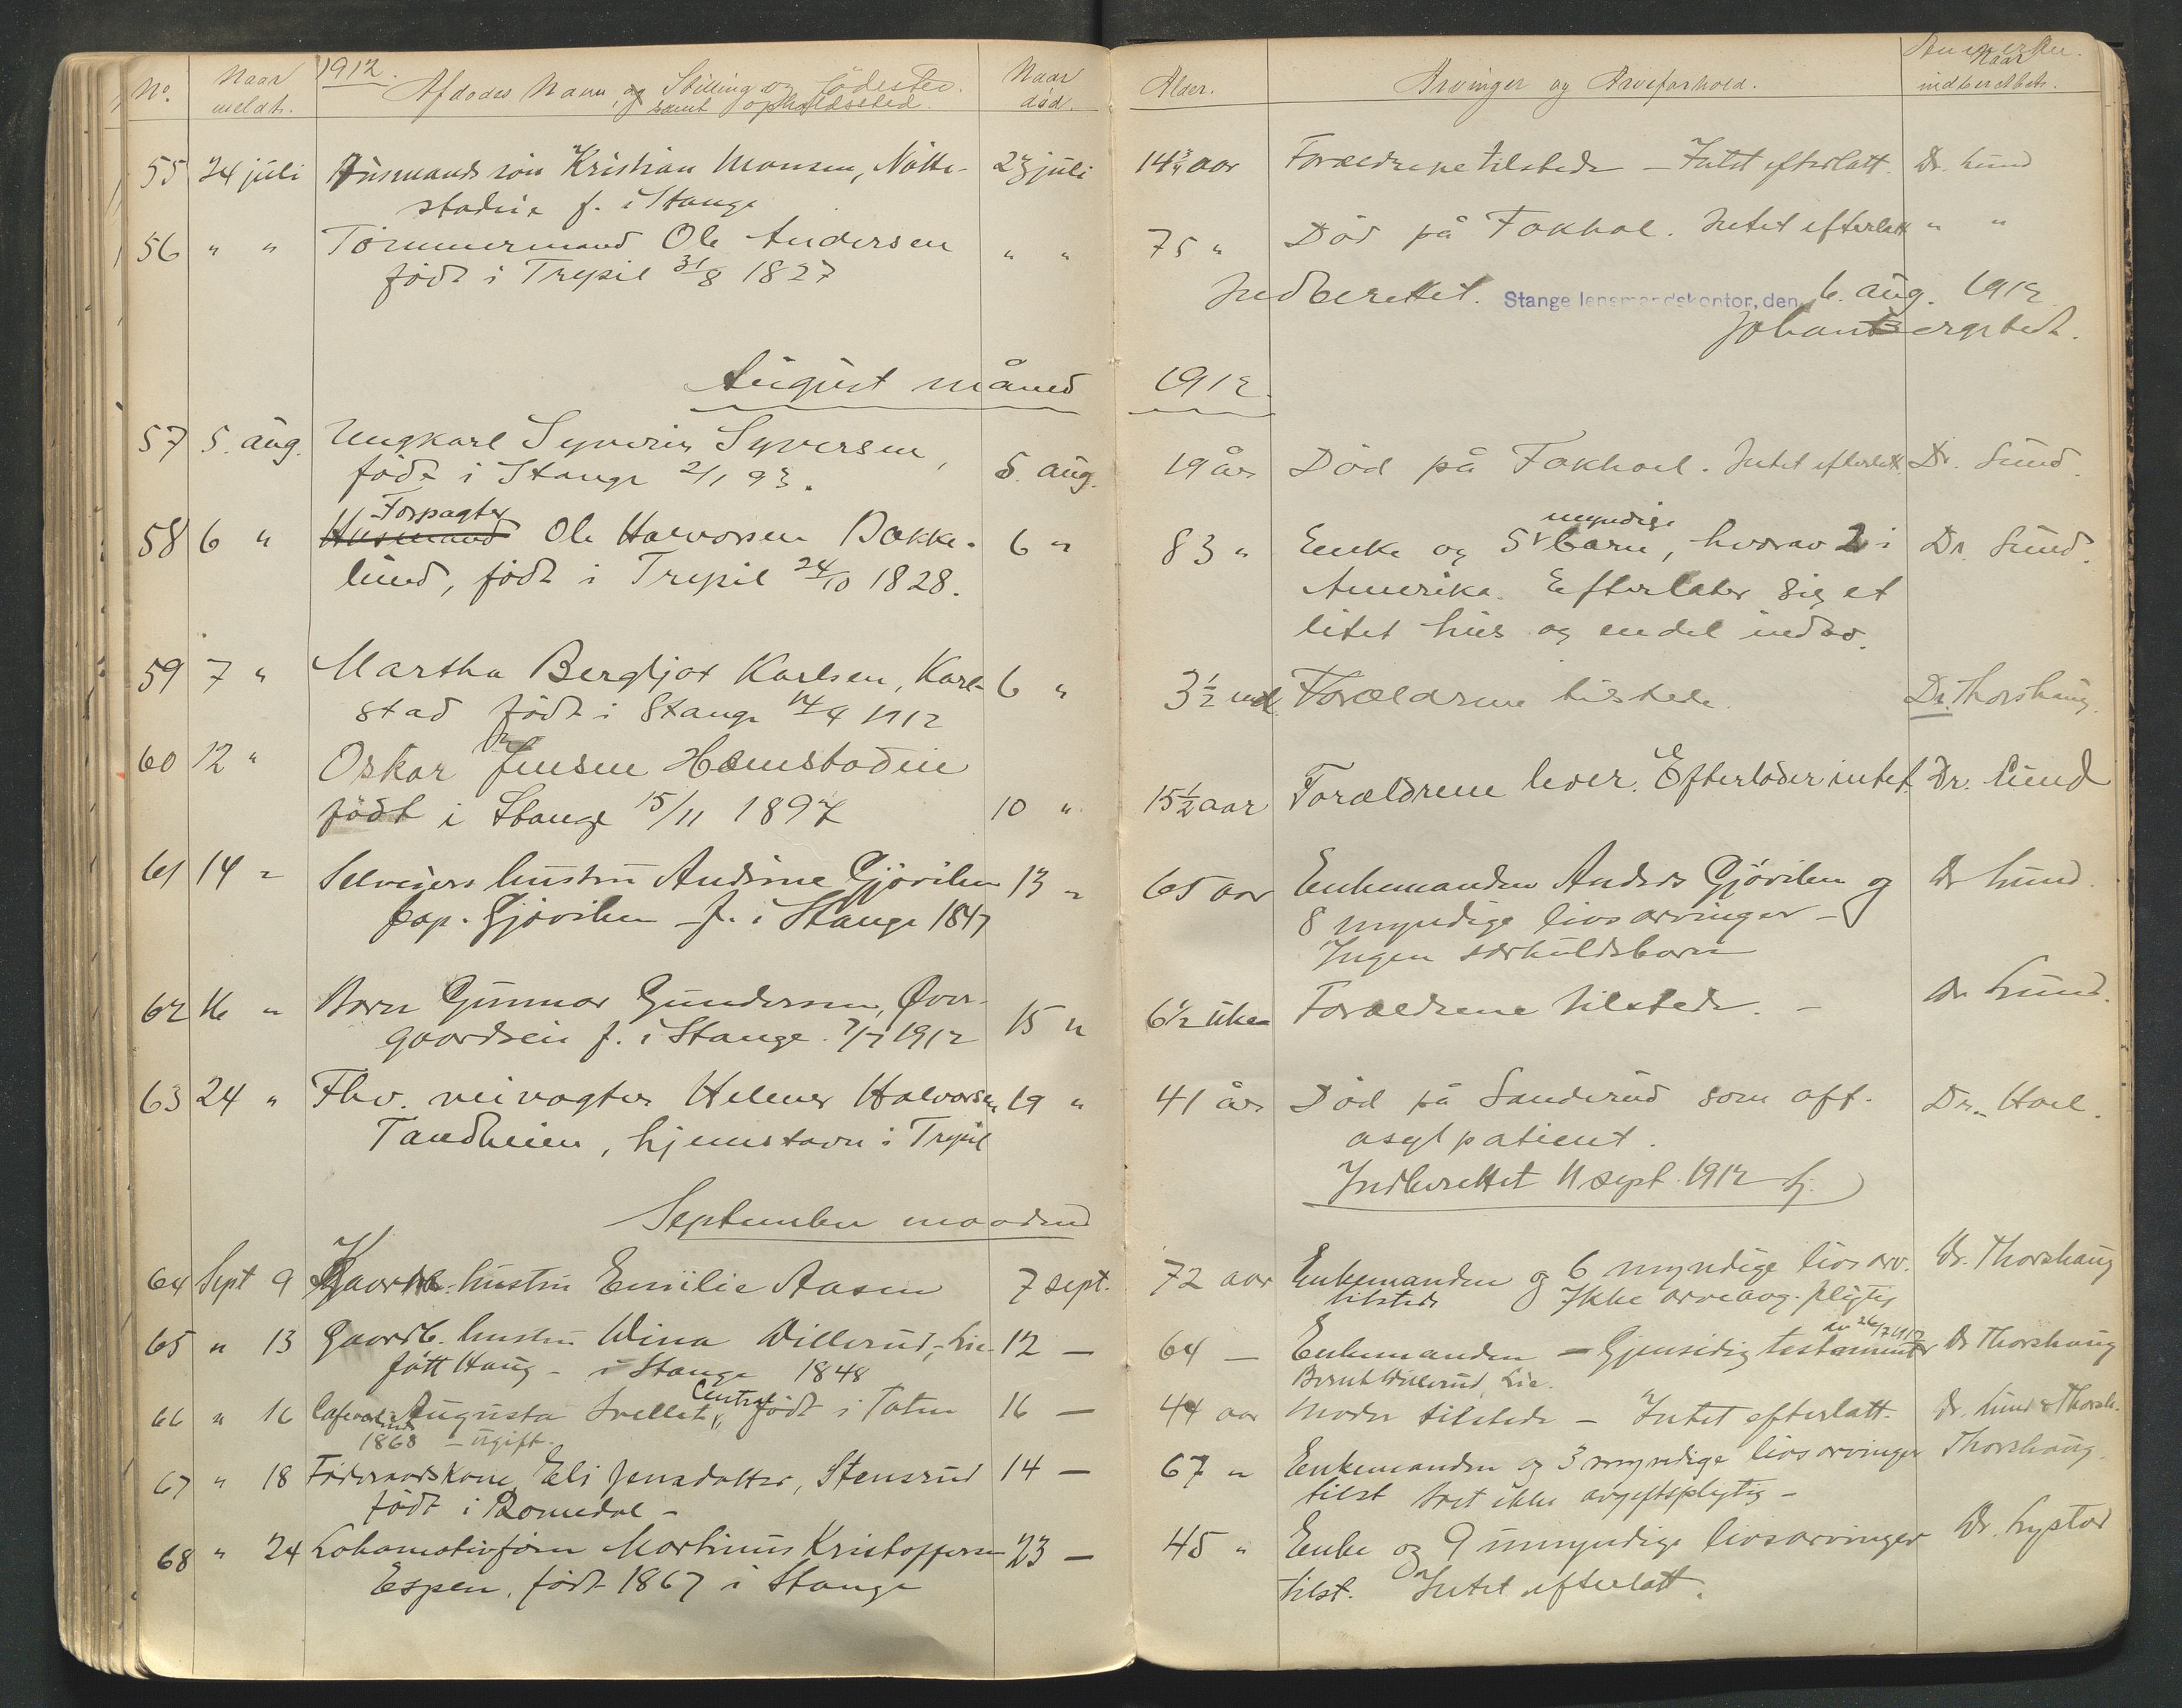 No. Naar meldt. 1912. Afdødes Navn, og Stilling og Fødested. Naar død. Alder. Arvinger og Arveforhold. Naar
samt opholdssted. indberettet.
55 24 juli Husmands søn Kristian Monsen, Nøtte- 23 juli 14 3/4 aar Forældrene tilstede — Intet efterlatt. Dr. Lund
stadeie f. i Stange
56 " " Tømmermand Ole Andersen " " 75 " Død på Fokhol. Intet efterlatt " "
født i Trysil 31/8 1827
Indberettet. Stange lensmandskontor, den 6. aug. 1912
Johan Bergstedt.
August måned 1912.
57 5. aug. Ungkarl Syverin Syversen, 5. aug. 19 år Død på Fokhoel. Intet efterlatt. Dr. Lund.
født i Stange 2/1 93.
Forpagter myndige
58 6 " Husmand Ole Halvorsen Bakke- 6 " 83 " Enke og 5 barn, hvorav 2 i Dr. Lund.
lund, født i Trysil 24/10 1828. Amerika. Efterlater sig et
litet hus og endel indbo.
59 7 " Martha Bergljot Karlsen, Karl- 6 " 3 1/2 md. Forældrene tilstede. Dr. Thorshaug.
stad født i Stange 14/4 1912
60 12 " Oskar Jensen Hemstadeie
født i Stange 15/11 1897 10 " 15 1/2 aar Forældrene lever. Efterlader intet. Dr. Lund
61 14 " Selveiers hustru Andrine Gjøvihen 13 " 65 aar Enkemanden Anders Gjøvihen og Dr Lund.
pap. Gjøvihen f. i Stange 1847 8 myndige livsarvinger —
Ingen særkuldsbarn
62 16 " Barn Gunnar Gundersen, Øver- 15 " 6 1/2 uke Forældrene tilstede. — Dr. Lund.
gaardseie f. i Stange 2/7 1912
63 24 " Fhv. veivogter Helmer Halvorsen 19 " 41 år Død på Sanderud som off. Dr. Hoel.
Tandheien, hjemstavn i Trysil asylpatient.
Indberettet 11 sept. 1912
September maaned
64 Sept 9 Gaardb. hustru Emilie Aasen 7 sept. 72 aar Enkemanden og 6 myndige livsarv. Dr. Thorshaug
tilstede Ikke arveavg. pligtig
65 " 13 Gaardb. hustru Wina Willerud, Lie 12 — 64 — Enkemanden — Gjensidig testamente av 26/7 1912 Dr Thorshaug
født Haug — i Stange 1848 Bernt Willerud, Lie.
66 " 16 Augusta Svellet, Central født i Toten 16 — 44 aar Moder tilstede — Intet efterlatt. Dr. Lund & Thorsh.
1868 — ugift.
67 " 18 Føderaadskone Eli Jensdatter, Stensrud 14 — 67 " Enkemanden og 3 myndige livsarvinger Thorshaug.
født i Romedal — tilst boet ikke avgiftspligtig —
68 " 24 Lokomotivfører Martinus Kristoffersen 23 — 45 " Enke og 9 umyndige livsarvinger Dr. Lystad
Espen, født 1867 i Stange tilst. Intet efterlatt.